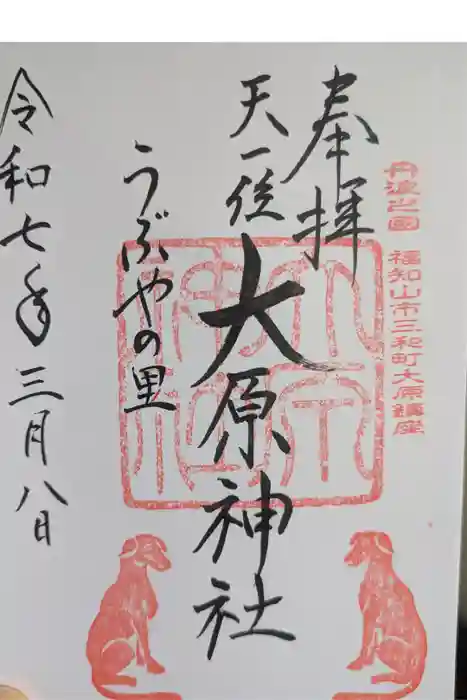 奉拝
丹波之國 福知山市三和町大原鎮座
天一位
大原神社
うぶやの里
令和七年三月八日
大原神社